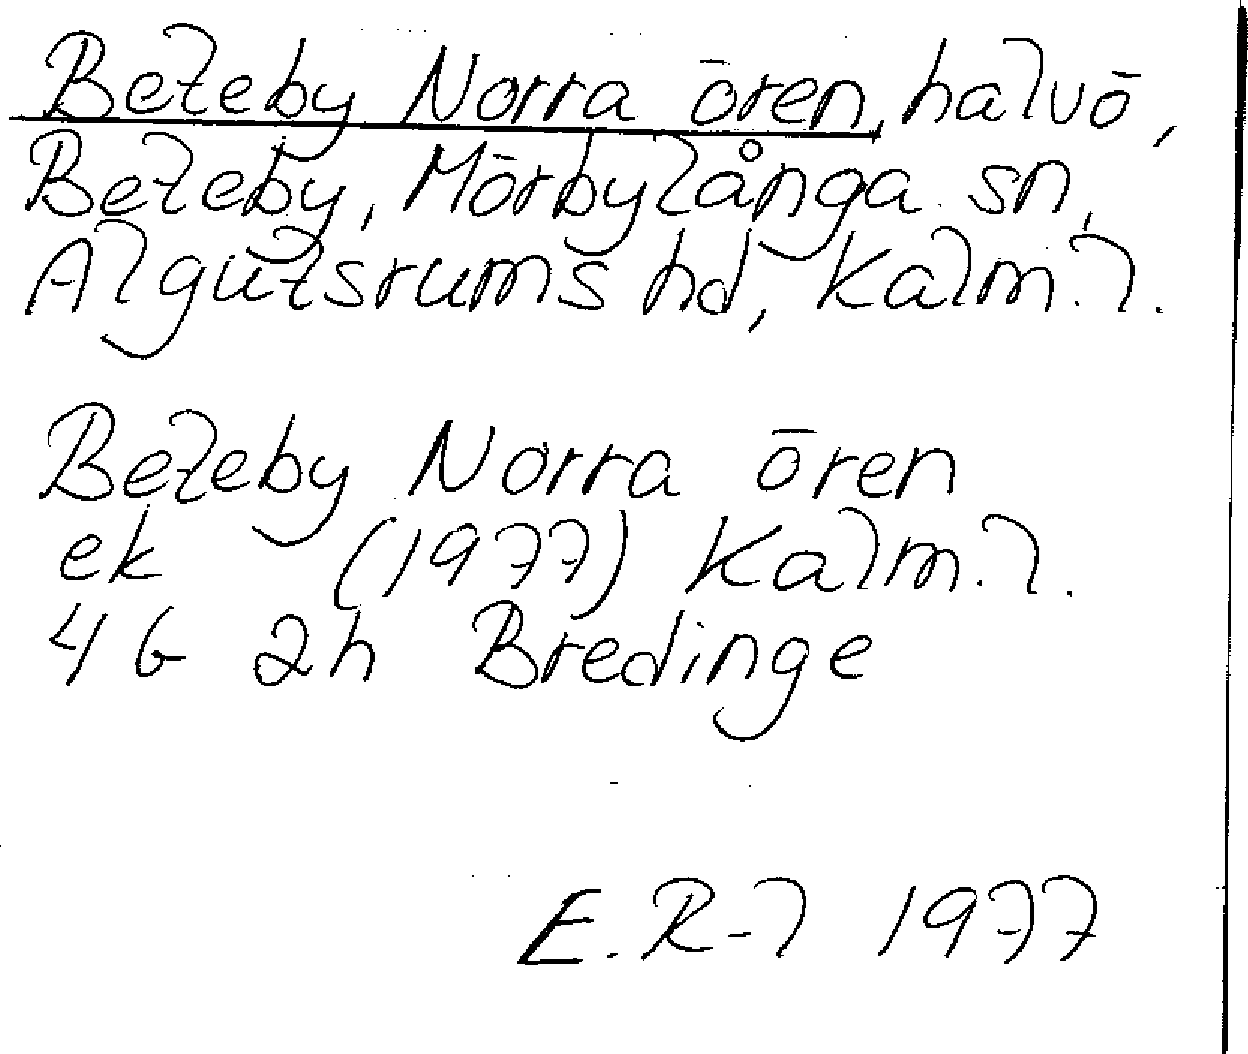 Beteby Norra ören, halvö,
Beteby, Mörbylånga sn,
Algutsrums hd, Kalm.l.
Beteby Norra ören
ek (1977) Kalm.l.
4G 2h Bredinge
E.R-l 1977